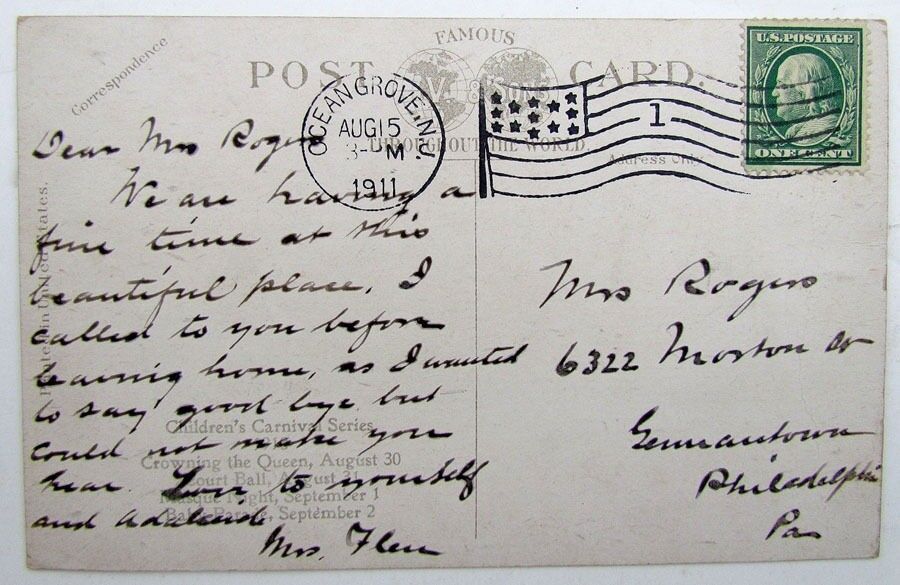 Correspondence
FAMOUS
POST CARD.
THROUGHOUT THE WORLD.
Address Only
OCEAN GROVE, N.J.
AUG 15
M
1911
1
U.S. POSTAGE
ONE CENT
Dear Mrs Rogers
We are having a
fine time at this
beautiful place. I
called to you before
leaving home, as I wanted
to say good bye but
could not make you
hear. Love to yourself
and
Mrs.
Children's Carnival Series
Crowning the Queen, August 30
Court Ball, August
Masque Night, September 1
Baby Parade, September 2
Mrs Rogers
6322 Morton St
Germantown
Philadelphia
Pa